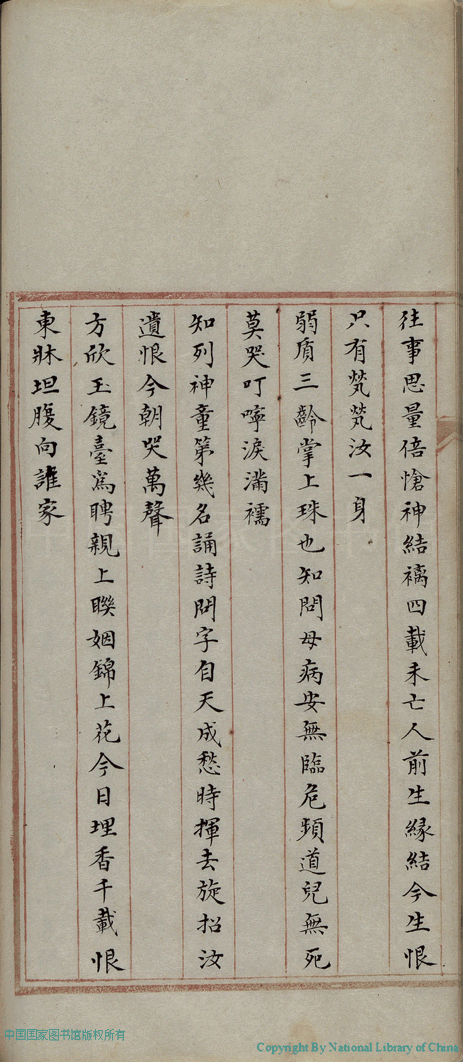 往事思量倍愴神結褵四載未亡人前生緣結今生恨
只有煢煢汝一身
弱質三齡掌上珠也知問母病安無臨危頻道兒無死
莫哭叮嚀淚滿襦
知列神童第幾名誦詩問字自天成愁時揮去旋招汝
遺恨今朝哭萬聲
方欣玉鏡臺爲聘親上聯姻錦上花今日埋香千載恨
東牀坦腹向誰家
中国国家图书馆版权所有
Copyright By National Library of China